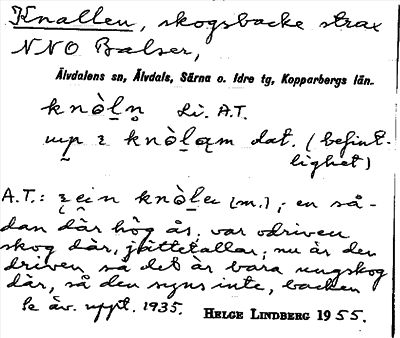 Knallen, skogsbacke strax
NNO Balser,
Älvdalens sn, Älvdals, Särna o. Idre tg, Kopparbergs län.
knòl̥n̥ Li. A.T.
up ε knòlαm dat. (befint-
lighet)
A.T.: ein knòlę (m.); en så-
dan där hög ås; var odriven
skog där, jättetallar; nu är den
driven så det är bara ungskog
där, så den syns inte, backen
Se äv. uppt. 1935. HELGE LINDBERG 1955.